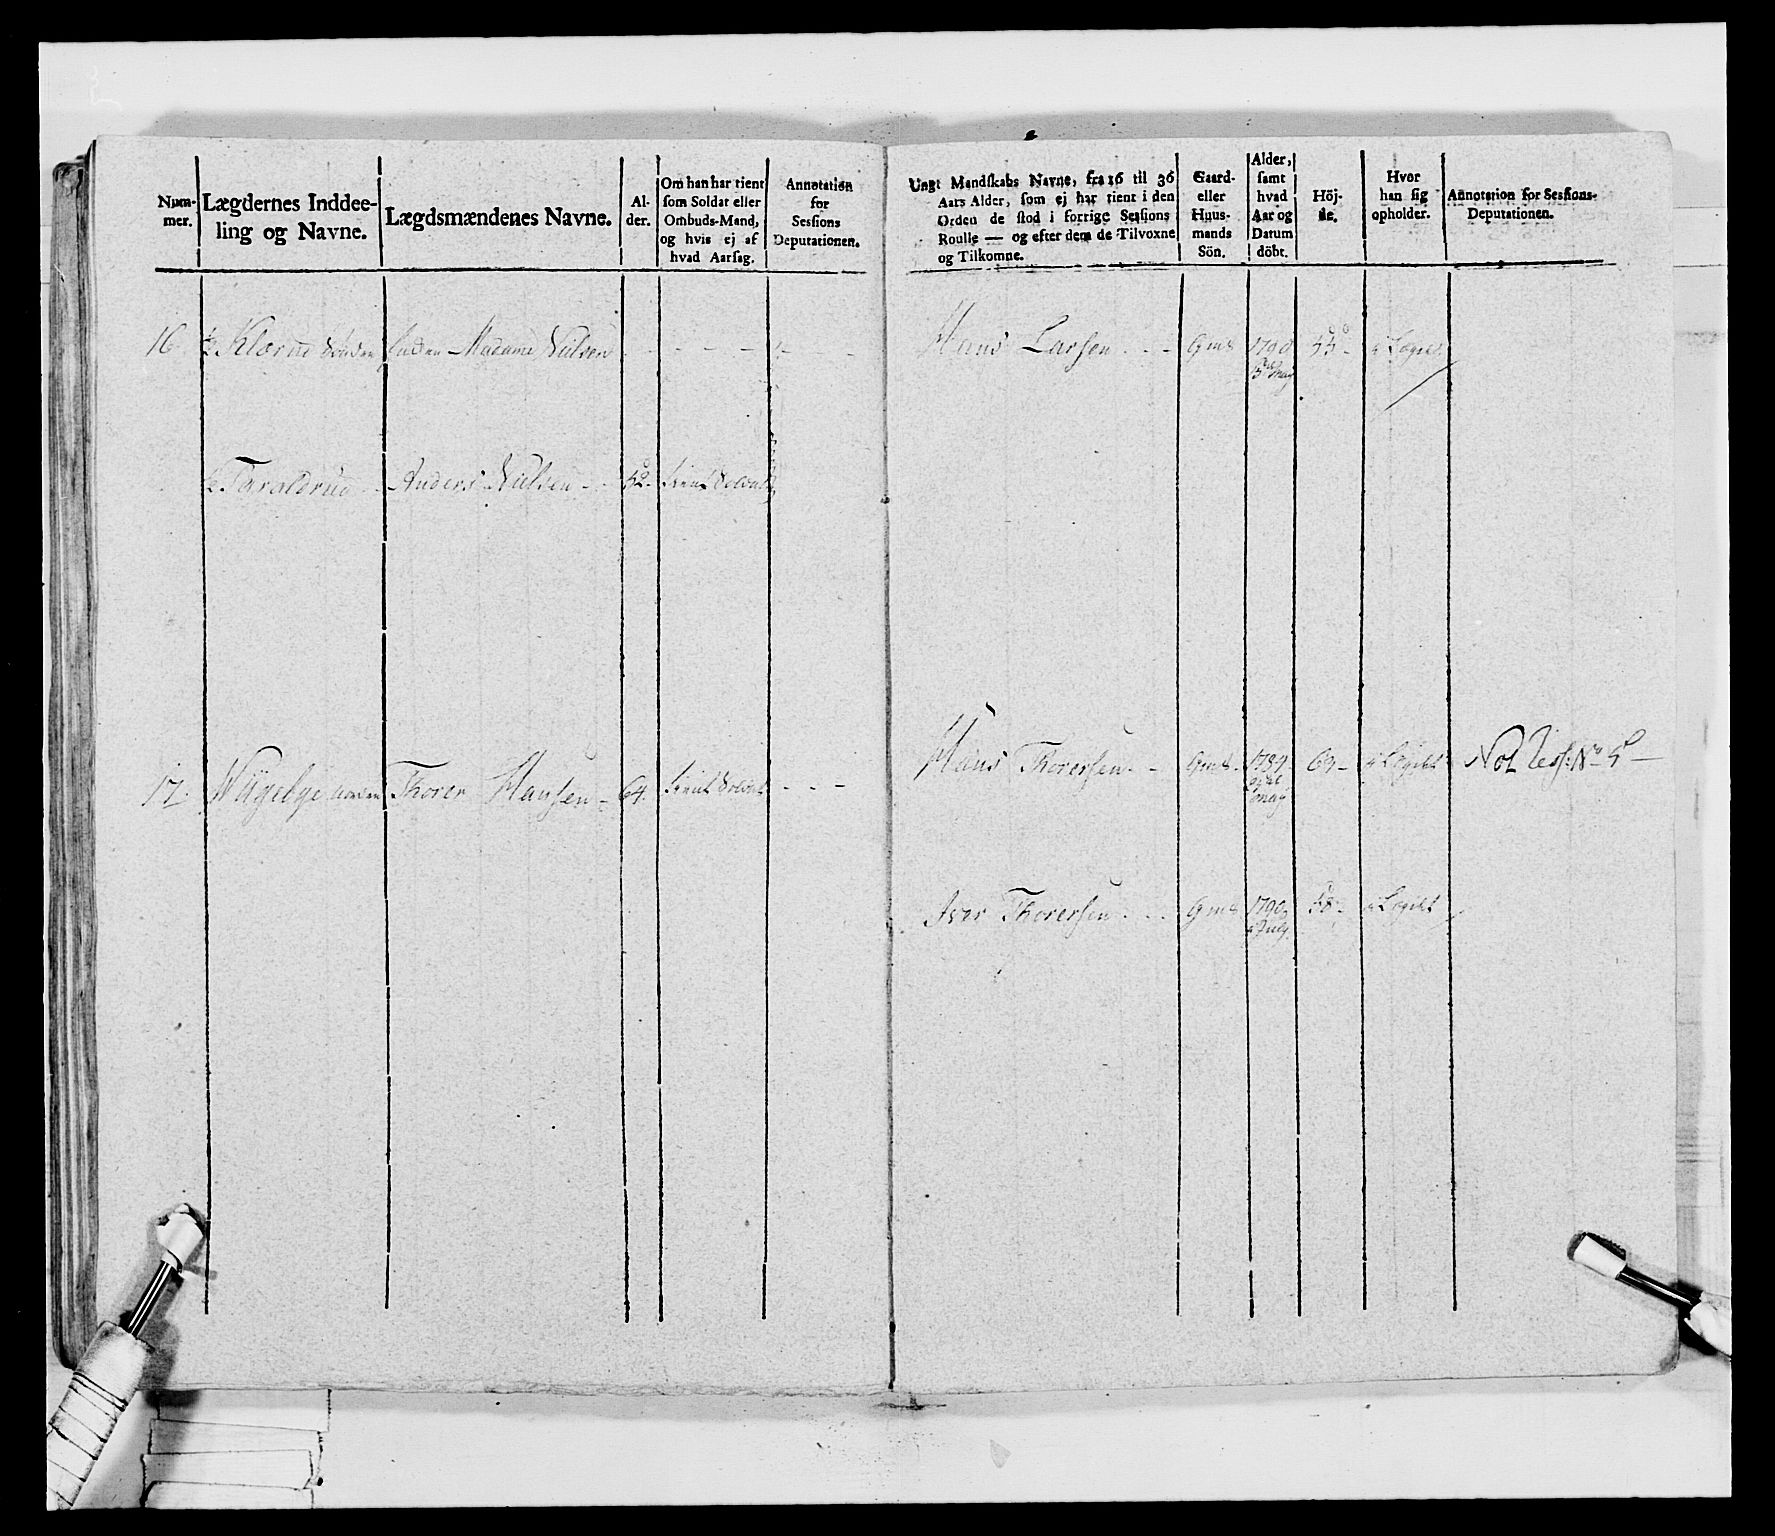 Num-
mer.
Lægdernes Inddee-
ling og Navne.
Lægdsmændenes Navne.
Al-
der.
Om han har tient
som Soldat eller
Ombuds-Mand,
og hvis ej af
hvad Aarsag.
Annotation
for
Sessions
Deputationen.
Ungt Mandskabs Navne, fra 16 til 36
Aars Alder, som ej har tient i den
Orden de stod i forrige Sessions
Roulle — og efter dem de Tilvoxne
og Tilkomne.
Gaard-
eller
Huus-
mands
Sön.
Alder,
samt
hvad
Aar og
Datum
döbt.
Höj-
de.
Hvor
han sig
opholder.
Annotation for Sessions-
Deputationen.
16 ½ Klorud Sönden Madame Nielsen - - - -
Hans Larsen - - Gms 1790 55 - i Lægdet
½ Taraldrud - Anders Nielsen - - 52 - tient Soldat
Hans Thorersen - - Gms - 1784 63 - i Lægdet Not No 5
may
17. Thorer Hansen - 64. tient Soldat - - -
Iver Thorersen - - - Gms 1790 58 - i Lægdet
July